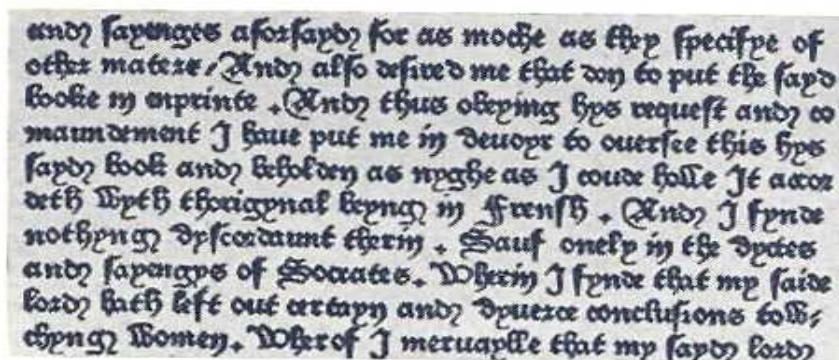 and sayenges aforsayd for as moche as they specifye of
other matere / And also desired me that don to put the sayd
booke in enprinte . And thus obeying hys request and co
maundement I haue put me in deuoyr to ouersee this hys
sayd book and beholden as nyghe as I coude howe It accor
deth wyth thorigynal beyng in Frensh . And I fynde
nothyng dyscordaunt therin . Sauf onely in the dyctes
and sayengys of Socrates . Wherin I fynde that my saide
lord hath left out certayn and dyuerce conclusions tow-
chyng women . Wherof I meruaylle that my sayd lord